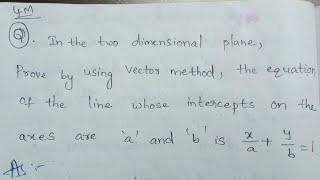 4M
Q. In the two dimensional plane,
Prove by using vector method, the equation
of the line whose intercepts on the
axes are 'a' and 'b' is x/a + y/b = 1
As :-